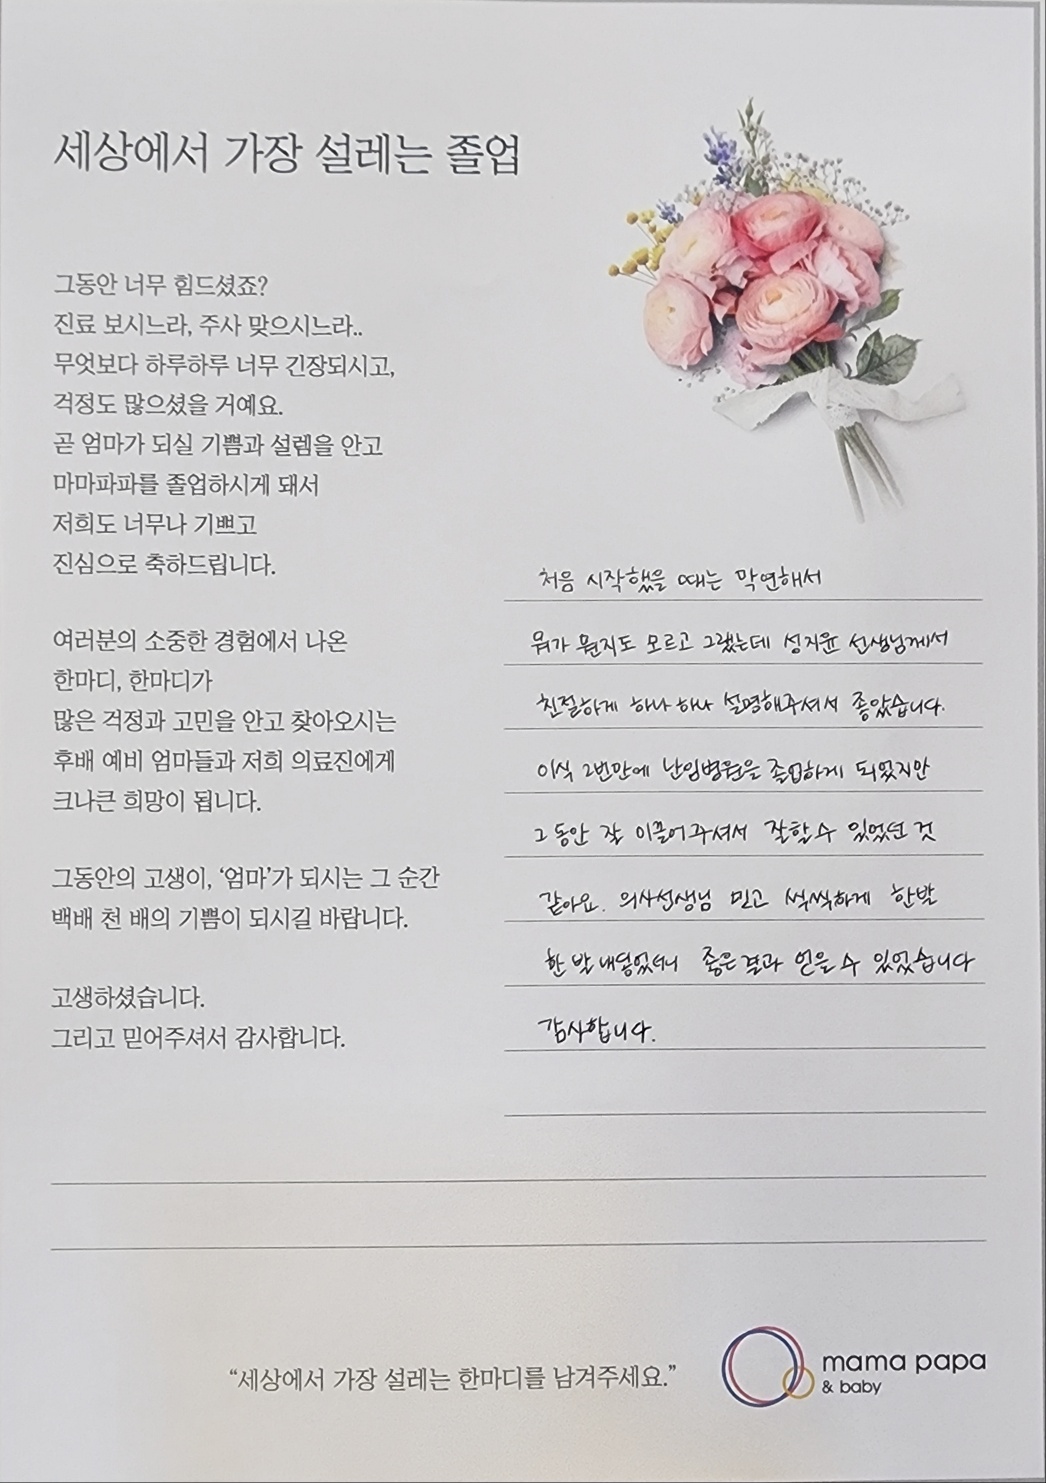 세상에서 가장 설레는 졸업
그동안 너무 힘드셨죠?
진료 보시느라, 주사 맞으시느라..
무엇보다 하루하루 너무 긴장되시고,
걱정도 많으셨을 거예요.
곧 엄마가 되실 기쁨과 설렘을 안고
마마파파를 졸업하시게 돼서
저희도 너무나 기쁘고
진심으로 축하드립니다.
여러분의 소중한 경험에서 나온
한마디, 한마디가
많은 걱정과 고민을 안고 찾아오시는
후배 예비 엄마들과 저희 의료진에게
크나큰 희망이 됩니다.
그동안의 고생이, ‘엄마’가 되시는 그 순간
백배 천 배의 기쁨이 되시길 바랍니다.
고생하셨습니다.
그리고 믿어주셔서 감사합니다.
처음 시작했을 때는 막연해서
뭐가 뭔지도 모르고 그랬는데 성지윤 선생님께서
친절하게 하나 하나 설명해주셔서 좋았습니다.
이식 2번만에 난임병원을 졸업하게 되었지만
그동안 잘 이끌어주셔서 잘할수 있었던 것
같아요. 의사선생님 믿고 씩씩하게 한발
한 발 내딛었더니 좋은결과 얻을 수 있었습니다
감사합니다.
“세상에서 가장 설레는 한마디를 남겨주세요.”
mama papa
& baby